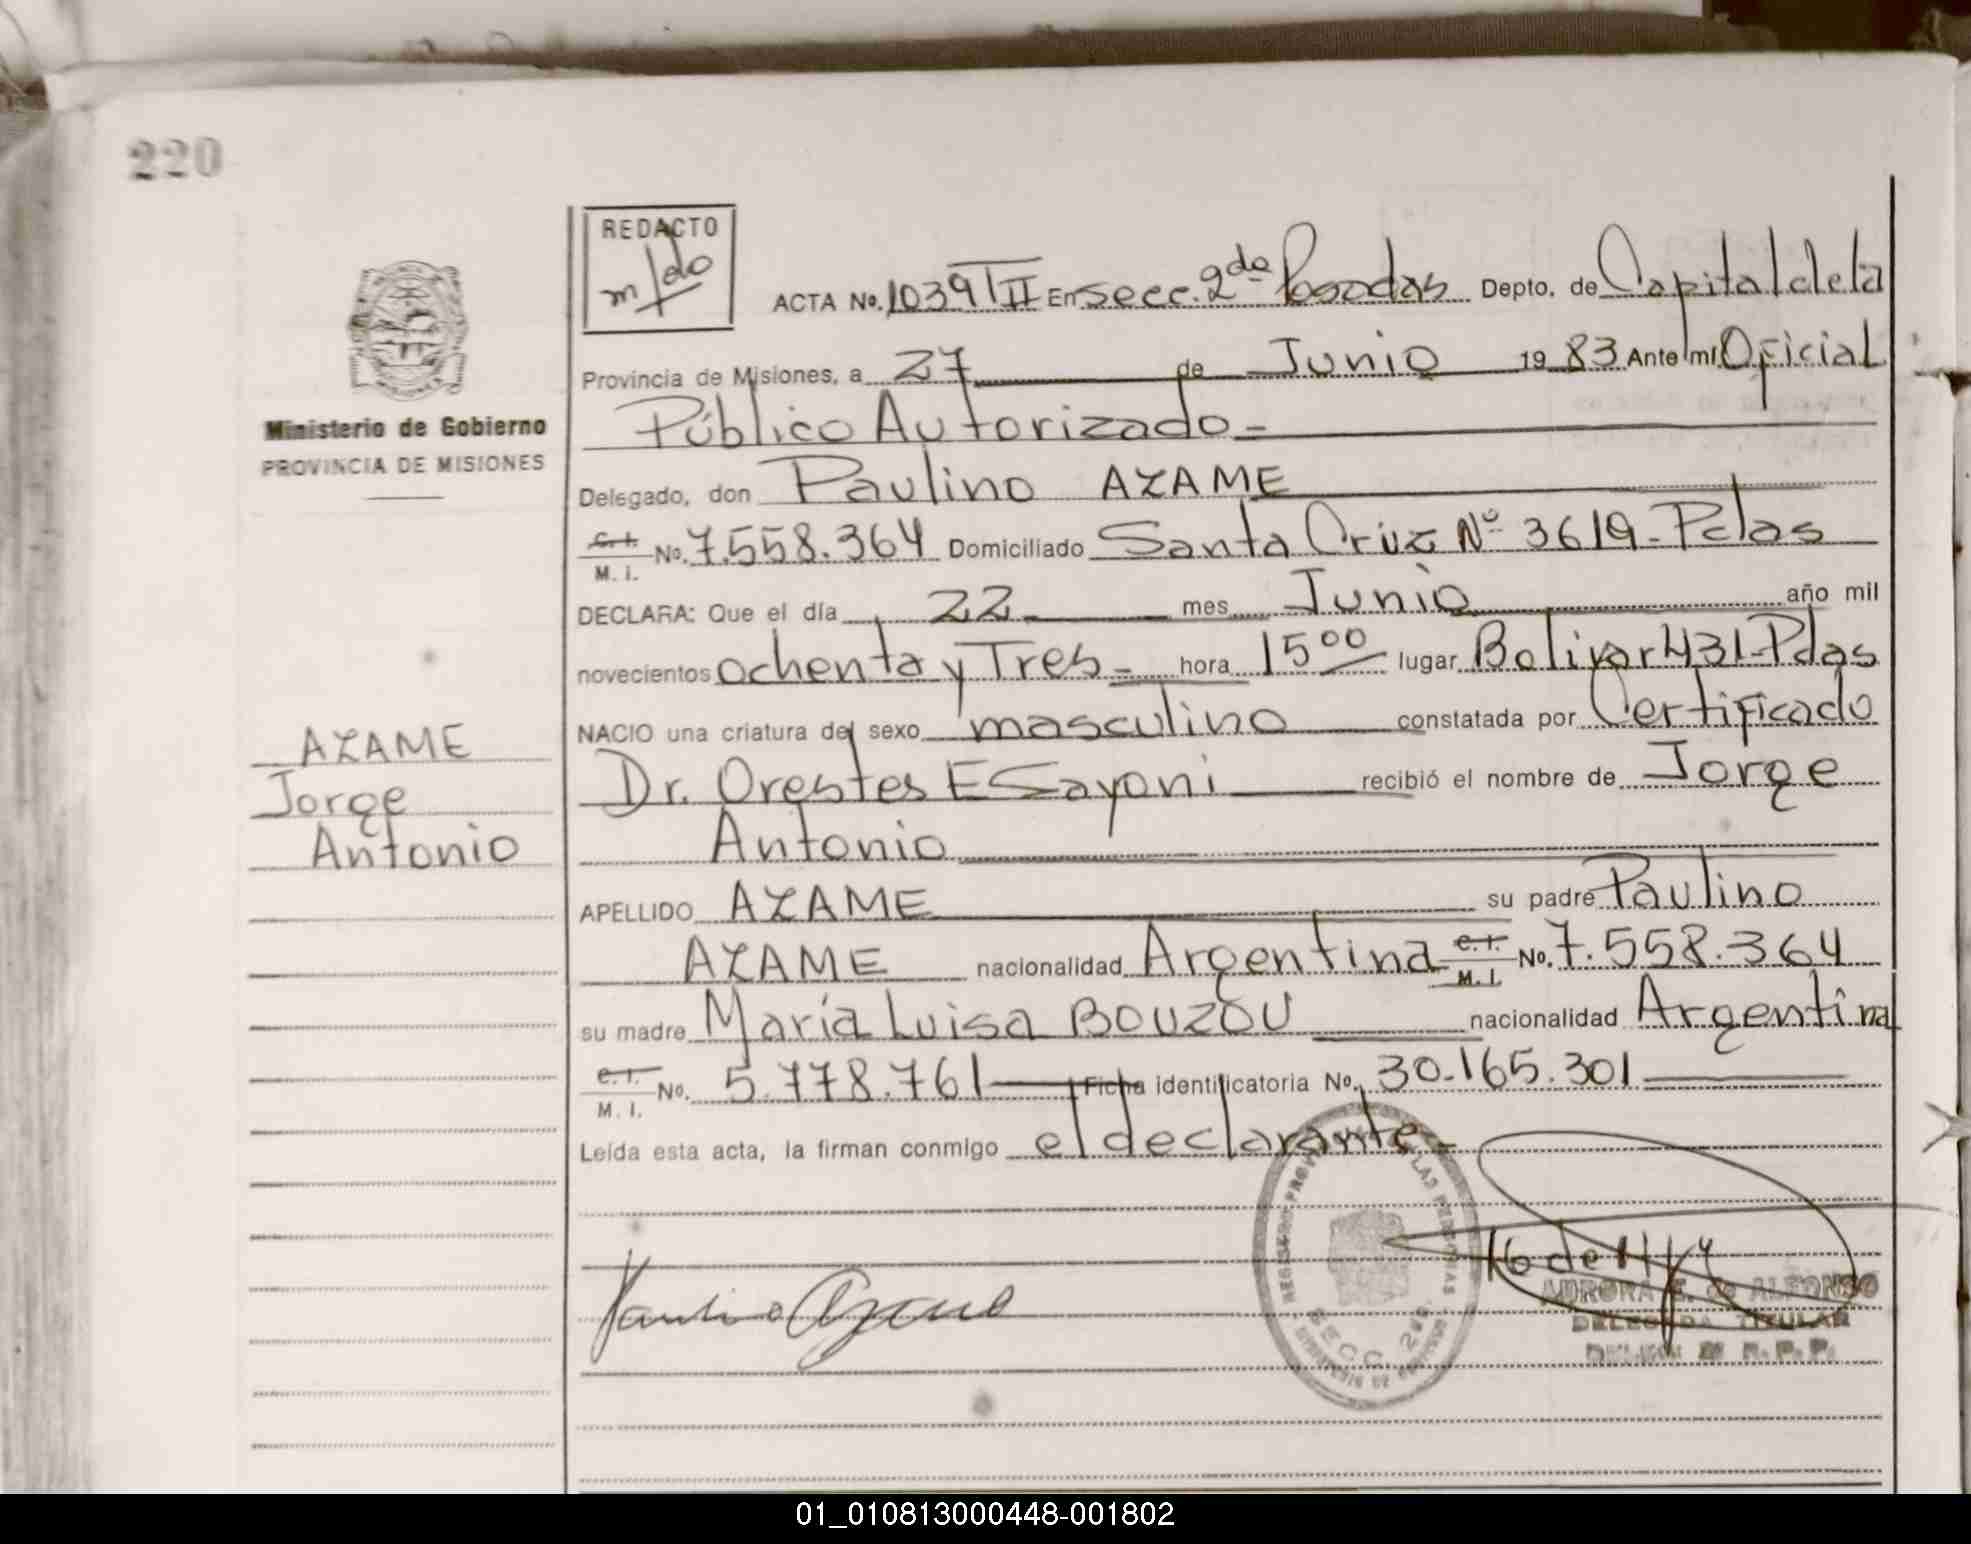 220
REDACTO
m/do
ACTA No. 1039 T II En secc. 2da Posadas Depto. de Capital de la
Provincia de Misiones, a 27 de Junio 1983 Ante mí Oficial
Público Autorizado-
Ministerio de Gobierno
PROVINCIA DE MISIONES
Delegado, don Paulino AZAME
C.I. M. I. No. 7.558.364 Domiciliado Santa Cruz Nº 3619-Pdas
DECLARA: Que el día 22 mes Junio año mil
novecientos ochenta y Tres- hora 15 00 lugar Bolivar 431-Pdas
NACIO una criatura del sexo masculino constatada por Certificado
Dr. Orestes E Sayoni recibió el nombre de Jorge
Antonio
AZAME
Jorge
Antonio
APELLIDO AZAME su padre Paulino
AZAME nacionalidad Argentina C.I. M. I. No. 7.558.364
su madre María Luisa BOUZOU nacionalidad Argentina
C.I. M. I. No. 5.778.761 Ficha identificatoria No. 30.165.301
Leída esta acta, la firman conmigo el declarante-
Paulino Azame
SECC. 2da.
AURORA E. de ALFONSO
DELEGADA TITULAR
R. P. P.
01_010813000448-001802